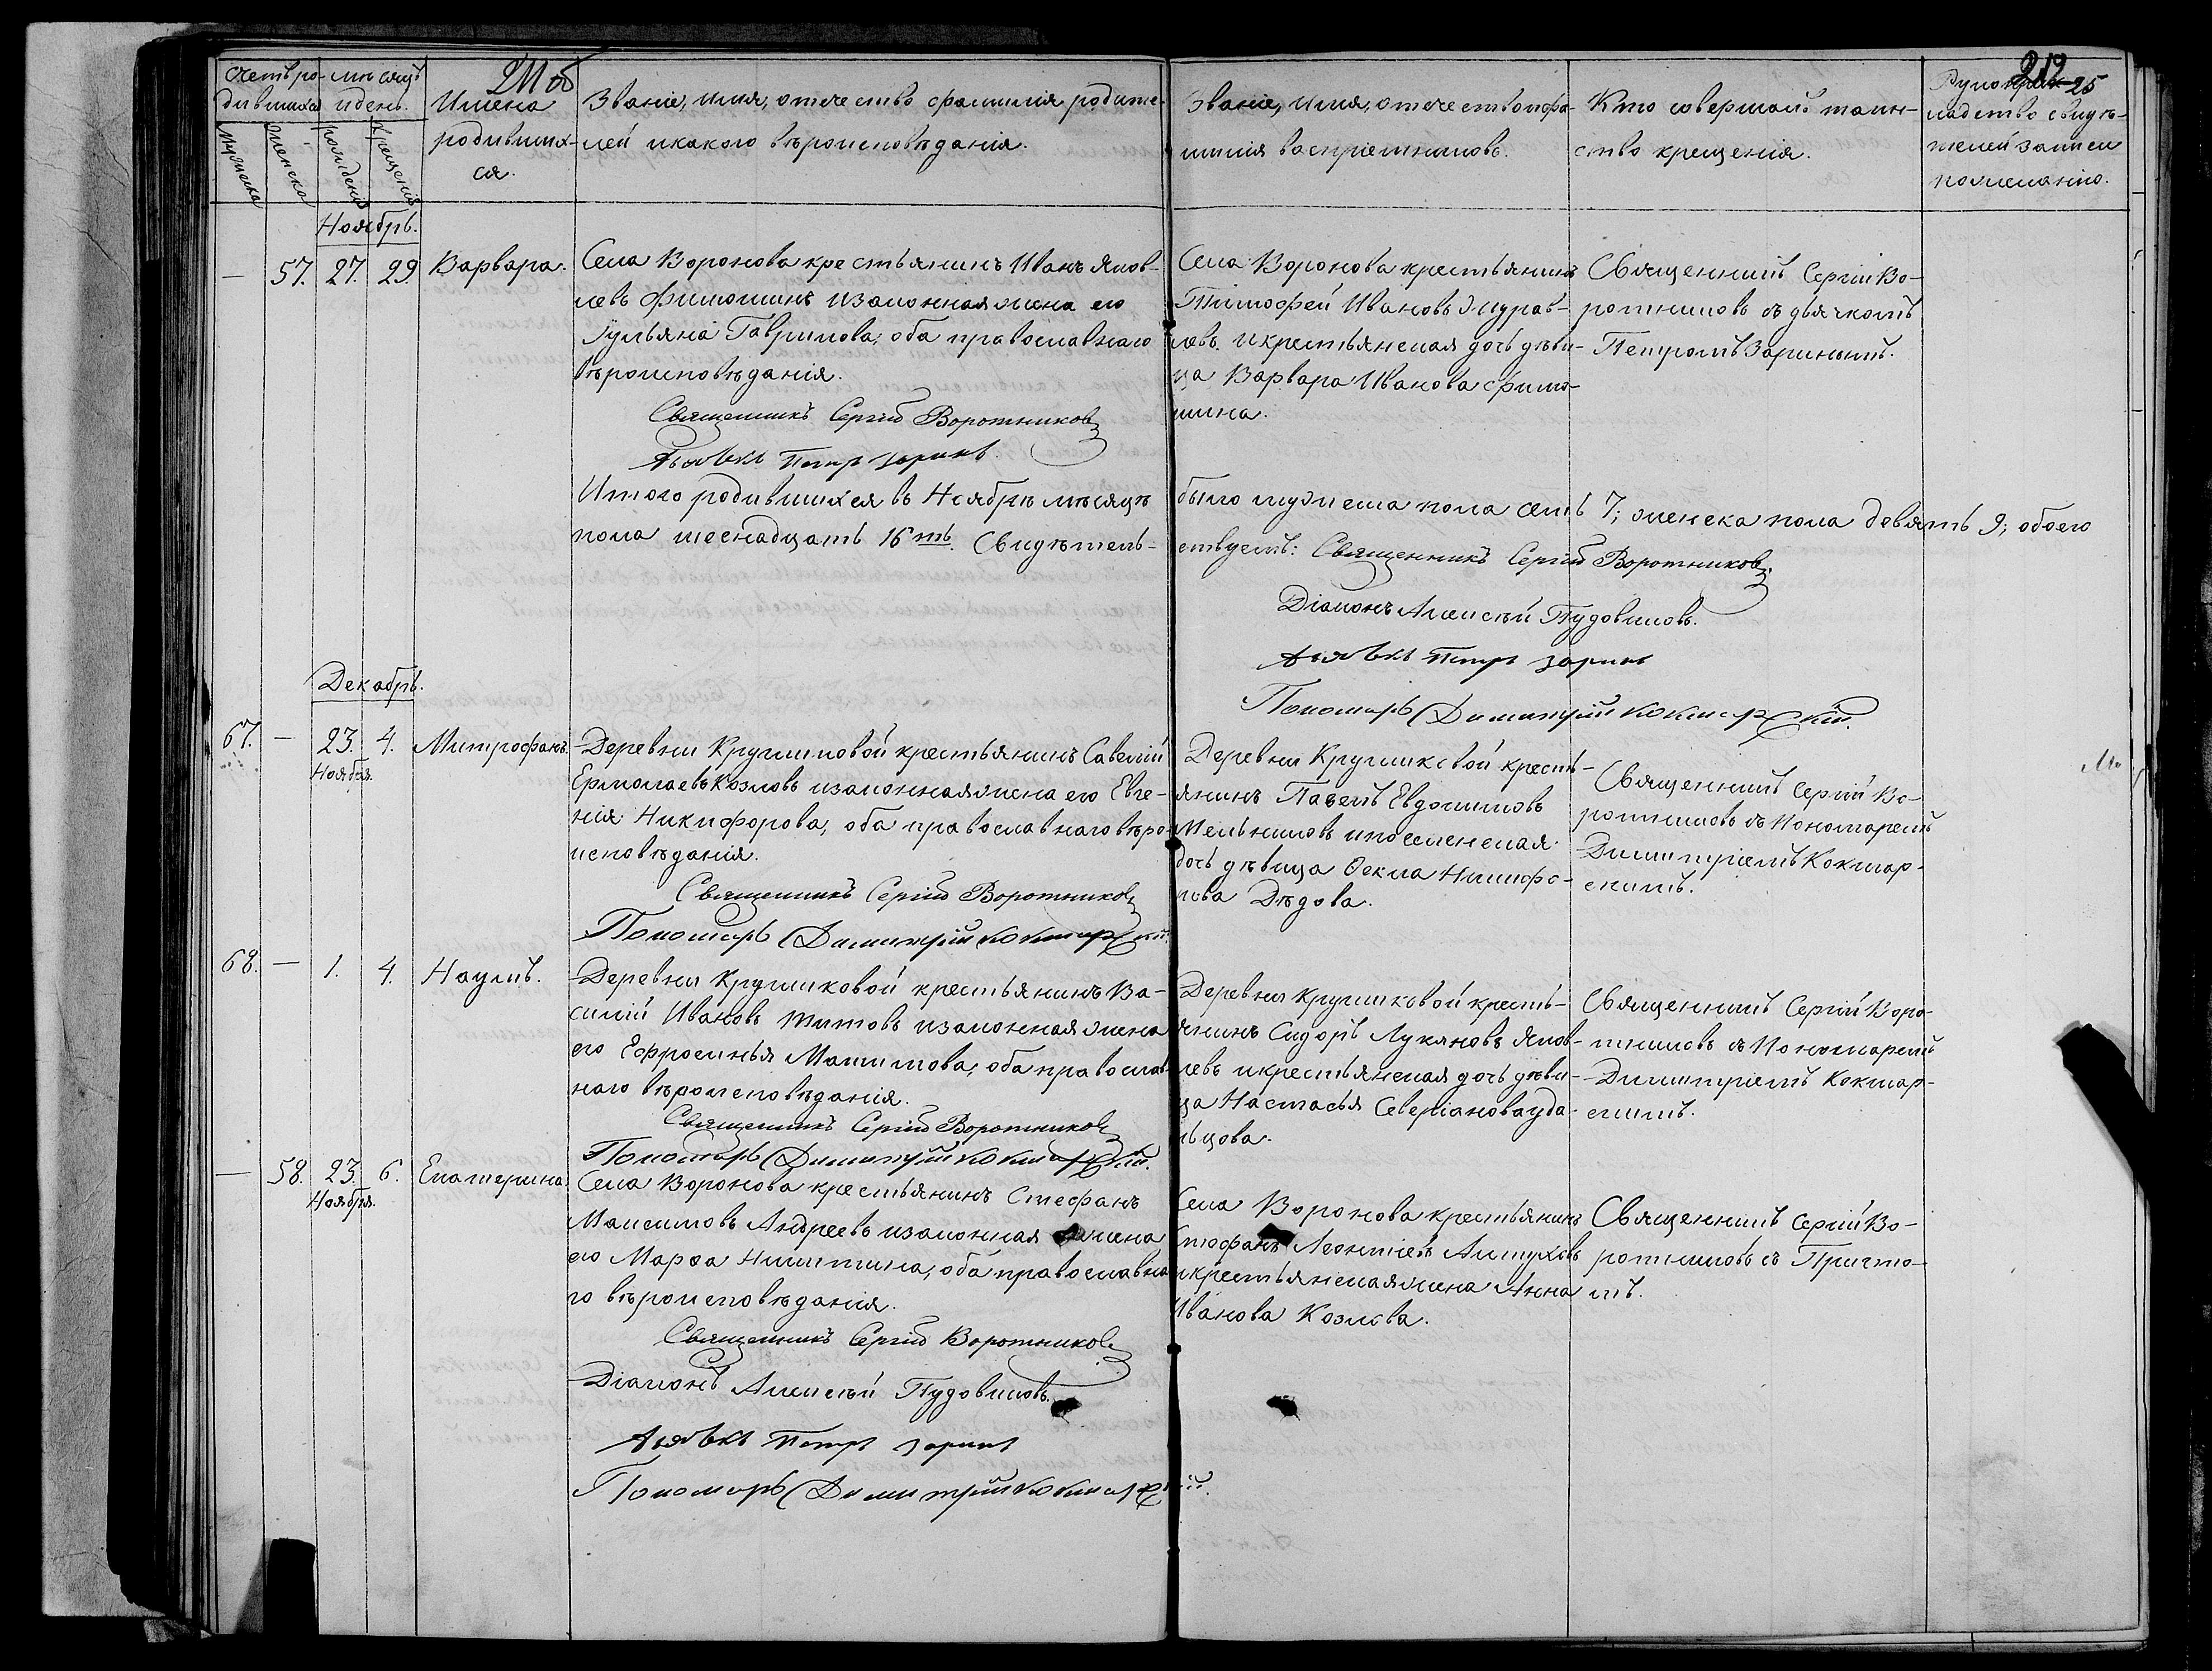 211 об
212
25
Счетъ ро-
дившихся
Мужеска
Женска
мѣсяцъ
и день.
Рожденія
Крещенія
Имена
родивших-
ся.
Званіе, имя, отечество и фамилія родите-
лей и какого вѣроисповѣданія.
Званіе, имя, отечество и фа-
милія воспріемниковъ.
Кто совершалъ таин-
ство крещенія.
Рукопри-
кладство свидѣ-
телей записи
по желанію.
Ноябрь.
— 57. 27. 29. Варвара.
Села Воронова крестьянинъ Иванъ Яков-
левъ Филошинъ и законная жена его
Іульяна Гаврилова, оба православнаго
вѣроисповѣданія.
Священникъ Сергій Воротников
Дьячекъ Петръ Заринъ
Села Воронова крестьянинъ
Тимофей Ивановъ Журав-
левъ и крестьянская дочь дѣви-
ца Варвара Иванова Фило-
шина.
Священникъ Сергій Во-
ротниковъ съ дьячкомъ
Петромъ Заринымъ.
Итого родившихся въ Ноябрѣ мѣсяцѣ было мужеска пола семь 7; женска пола девять 9; обоего
пола шеснадцать 16ть. Свидѣтель-ствуемъ: Священникъ Сергій Воротников
Діаконъ Алексѣй Пудовиковъ.
Дьячекъ Петръ Заринъ
Пономарь Димитрій Кокшарскій.
Декабрь.
67. — 23. 4. Митрофанъ.
Ноября.
Деревни Кругликовой крестьянинъ Савелій
Ермолаевъ Козловъ и законная жена его Евге-
нія Никифорова, оба православнаго вѣро-
исповѣданія.
Священникъ Сергій Воротников
Пономарь Димитрій Кокшарскій
Деревни Кругликовой кресть-
янинъ Павелъ Евдокимовъ
Мельниковъ и поселенская
дочь дѣвица Ѳекла Никифо-
рова Дѣдова.
Священникъ Сергій Во-
ротниковъ съ Пономаремъ
Димитріемъ Кокшар-
скимъ.
68. — 1. 4. Наумъ.
Деревни Кругликовой крестьянинъ Ва-
силій Ивановъ Титовъ и законная жена
его Ефросинья Максимова, оба православ-
наго вѣроисповѣданія.
Священникъ Сергій Воротников
Пономарь Димитрій Кокшарскій.
Деревни Кругликовой кресть-
янинъ Сидоръ Лукяновъ Яков-
левъ и крестьянская дочь дѣви-
ца Настасья Северіанова Уда-
льцова.
Священникъ Сергій Воро-
тниковъ съ Пономаремъ
Димитріемъ Кокшар-
скимъ.
— 58. 23. 6. Екатерина.
Ноября.
Села Воронова крестьянинъ Стефанъ
Максимовъ Андреевъ и законная жена
его Марѳа Никитина, оба православна-
го вѣроисповѣданія.
Священникъ Сергій Воротников
Діаконъ Алексѣй Пудовиковъ.
Дьячекъ Петръ Заринъ
Пономарь Димитрій Кокшарскій.
Села Воронова крестьянинъ
Стефанъ Леонтіевъ
и крестьянская жена Анна
Иванова Козлова.
Священникъ Сергій Во-
ротниковъ съ Причто-
мъ.